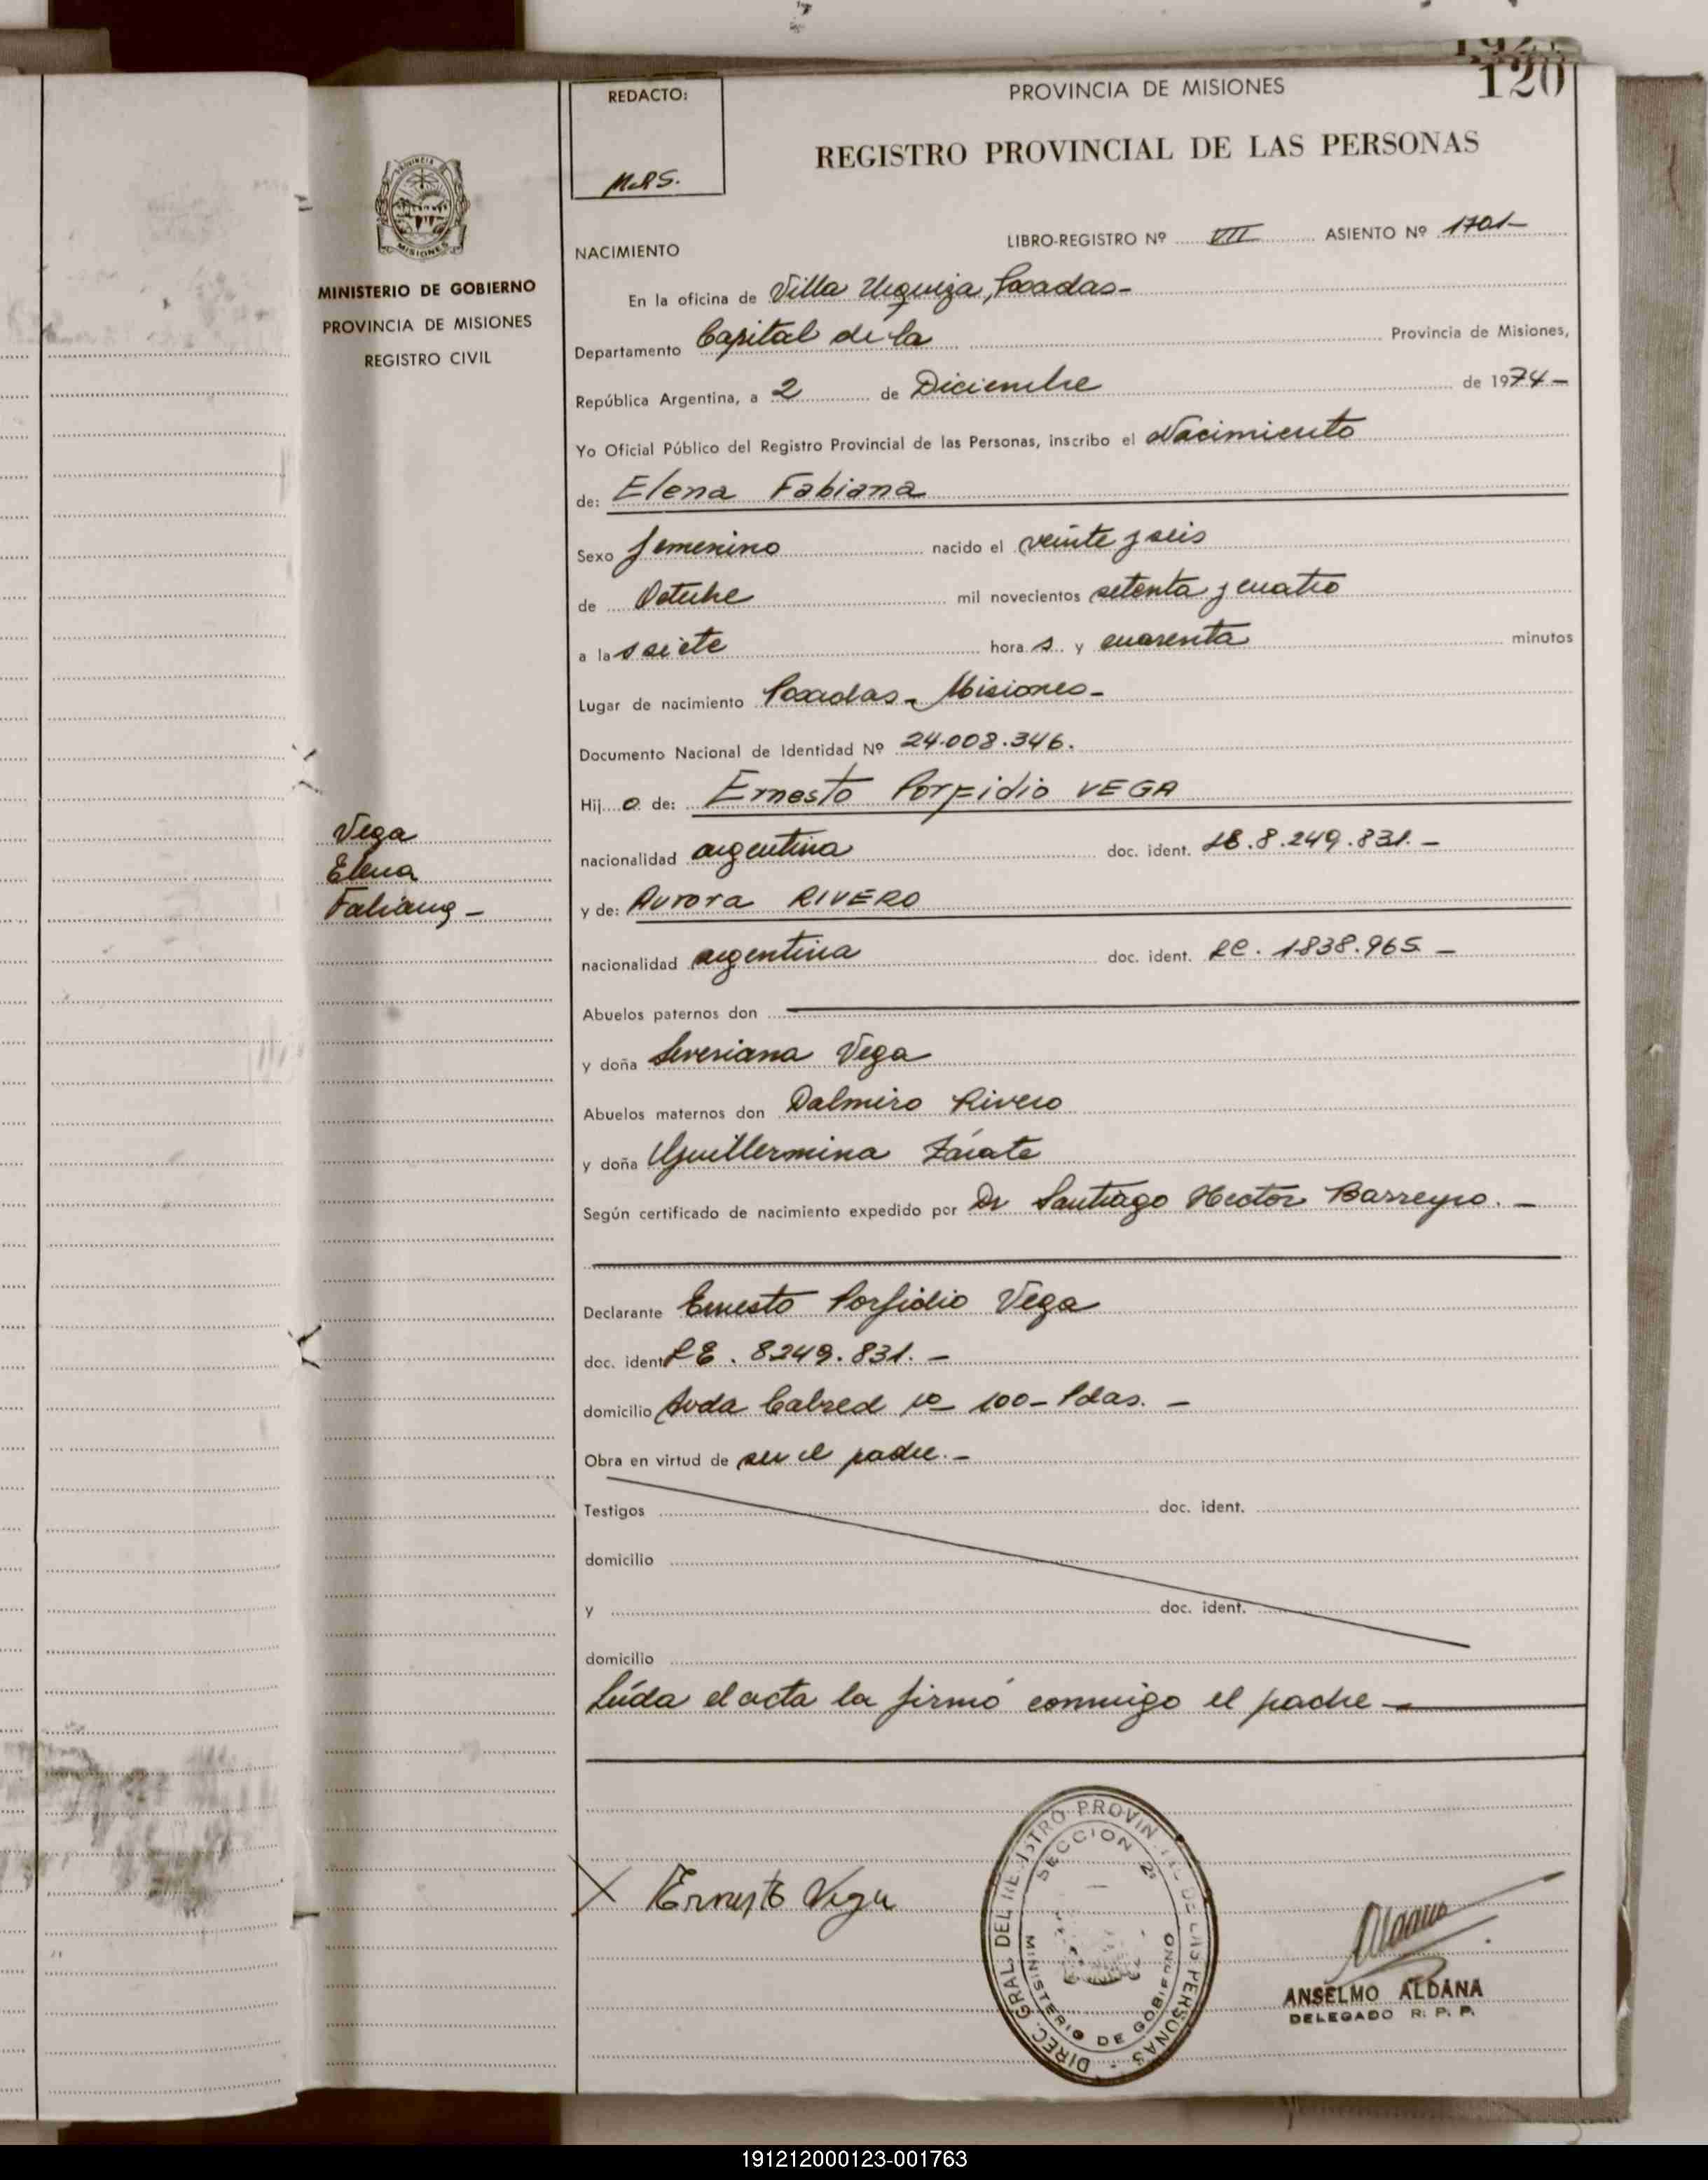 120
REDACTO:
PROVINCIA DE MISIONES
REGISTRO PROVINCIAL DE LAS PERSONAS
PROVINCIA
MISIONES
MINISTERIO DE GOBIERNO
PROVINCIA DE MISIONES
REGISTRO CIVIL
NACIMIENTO
LIBRO-REGISTRO Nº VII ASIENTO Nº 1701-
En la oficina de Villa Urquiza, Posadas-
Departamento Capital de la Provincia de Misiones,
República Argentina, a 2 de Diciembre de 1974-
Yo Oficial Público del Registro Provincial de las Personas, inscribo el Nacimiento
de: Elena Fabiana
Sexo femenino nacido el veinte y seis
de Octubre mil novecientos setenta y cuatro
a las siete hora s y cuarenta minutos
Lugar de nacimiento Posadas - Misiones-
Documento Nacional de Identidad Nº 24.008.346.
Hij a de: Ernesto Porfidio VEGA
nacionalidad argentina doc. ident. LE. 8.249.831.-
y de: Aurora RIVERO
nacionalidad argentina doc. ident. LC. 1838.965 -
Abuelos paternos don
y doña Severiana Vega
Abuelos maternos don Dalmiro Rivero
y doña Guillermina Zárate
Según certificado de nacimiento expedido por Dr Santiago Hector Barreyro. -
Vega
Elena
Fabiana -
Declarante Ernesto Porfidio Vega
doc. ident LE. 8249.831. -
domicilio Avda Cabred 100 - Pdas. -
Obra en virtud de ser el padre.-
Testigos doc. ident.
domicilio
y doc. ident.
domicilio
Leída el acta la firmó conmigo el padre -
X Ernesto Vega
DIREC. GRAL. DEL REGISTRO PROVINCIAL DE LAS PERSONAS -
SECCION 2ª
MINISTERIO DE GOBIERNO
ANSELMO ALDANA
DELEGADO R. P. P.
191212000123-001763